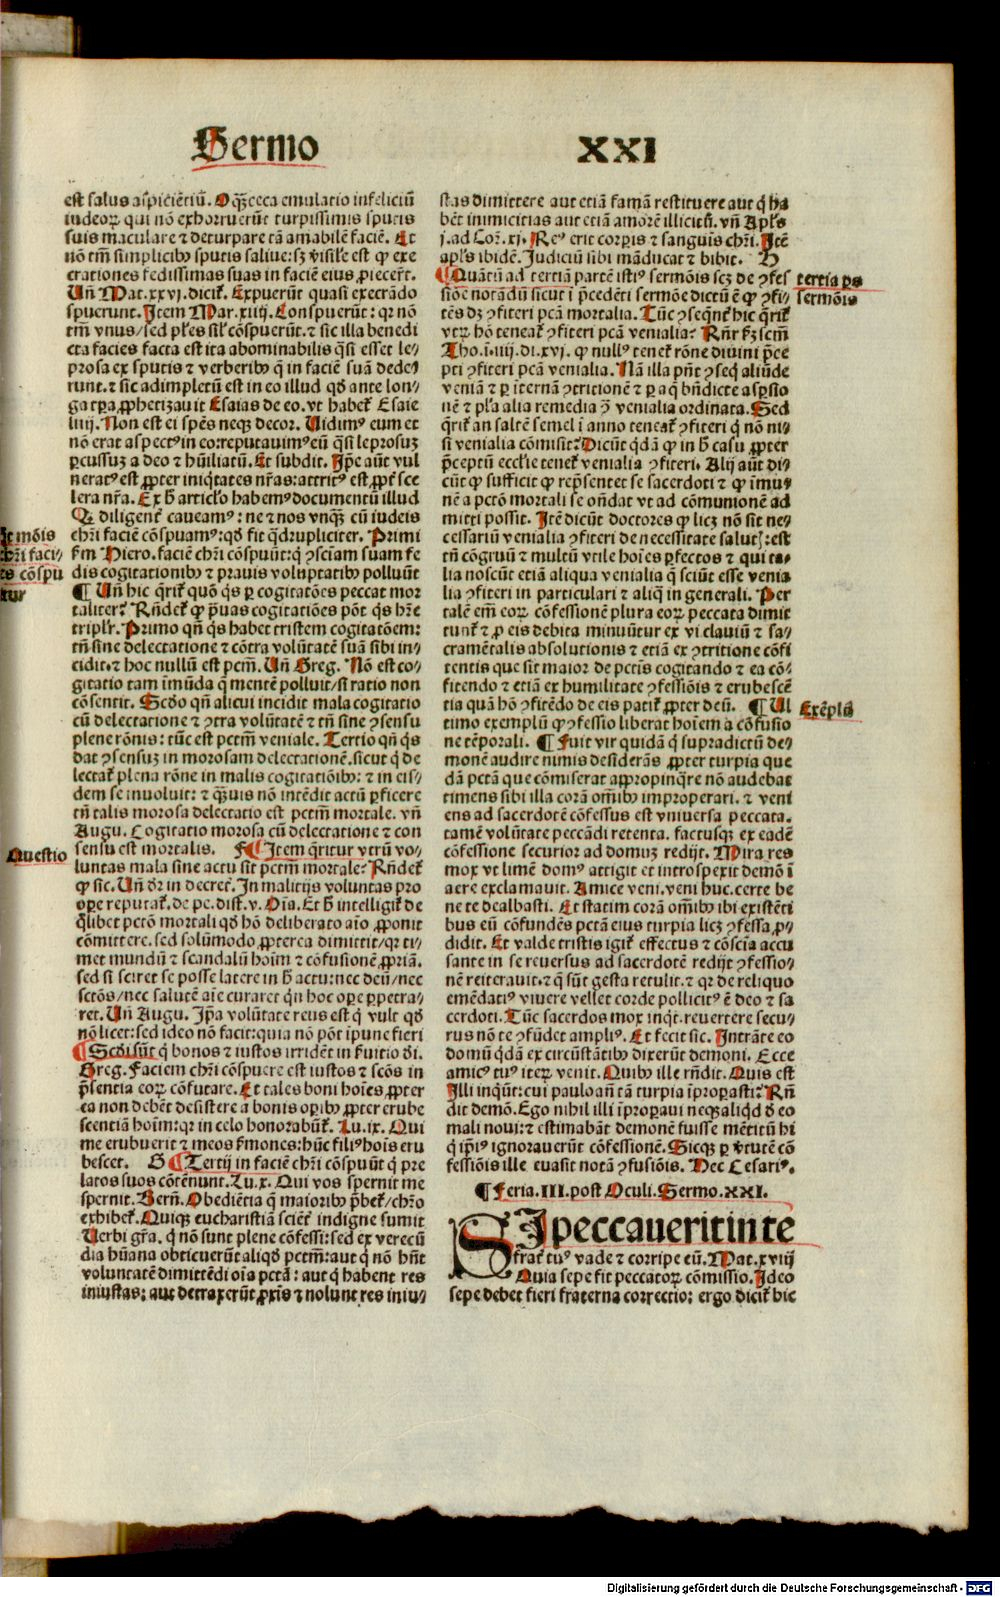 Sermo XXI
est salus aſpiciētiū. O q̄ȝ ceca emulatio infeliciū
iudeoꝝ qui nō exhorruerūt turpissimis sputis
suis maculare ⁊ deturpare tā amabilē faciē. Et
nō tm̄ simplicibꝰ sputis saliue: sȝ visi᷑le est ꝙ exe
crationes fedissimas suas in faciē eius ꝓiecer̄t.
Un̄ Mat.xxvj.dicit᷑. Expuerūt quasi execrādo
spuerunt. Item Mar.xiiij. Conspuerūt: qꝛ nō
tm̄ vnus/sed ples sil᷑ cōspuerūt.⁊ sic illa benedi
cta facies facta est ita abominabilis q̄si esset le⸗
prosa ex sputis ⁊ verberibꝰ q̄ in faciē suā dede⸗
runt.⁊ sic adimpletū est in eo illud qd̄ ante lon⸗
ga tꝑa ꝓphetizauit Esaias de eo.vt habet᷑ Esaie
liiij. Non est ei spēs neqȝ decor. Uidimꝰ eum et
nō erat aspectꝰ in eo:reputauimꝰ eū q̄si leprosuȝ
ꝑcussuȝ a deo ⁊ hūiliatū. Et subdit. Ip̄e aūt vul
neratꝰ est ꝓpter iniq̄tates nr̄as:attritꝰ est ꝓpt᷑ sce
lera nr̄a. Ex h̄ articl̓o habemꝰ documentū illud
Q̄ diligent᷑ caueamꝰ: ne ⁊ nos vnqȝ cū iudeis
chr̄i faciē cōspuamꝰ:qd̄ fit q̄drupliciter. Primi
ẜm Hiero.faciē chr̄i cōspuūt:q̄ ꝯsciam suam fe
dis cogitationibꝰ ⁊ prauis voluptatibꝰ polluūt
¶ Un̄ hic q̄rit᷑ quō q̄s ꝑ cogitatōes peccat mor
taliter? Rn̄det᷑ ꝙ p̄uas cogitatiōes pōt q̄s hr̄e
tripl᷑r. Primo qn̄ q̄s habet tristem cogitatōem:
tn̄ sine delectatione ⁊ cōtra volūtatē suā sibi in⸗
cidit.⁊ hoc nullū est pctm̄. Un̄ Greg. Nō est co⸗
gitatio tam īmūda q̄ mentē polluit/si ratio non
cōsentit. Scd̄o qn̄ alicui incidit mala cogitatio
cū delectatione ⁊ ꝯtra volūtatē ⁊ tn̄ sine ꝯsensu
plene rōnis: tūc est pctm̄ veniale. Tertio qn̄ q̄s
dat ꝯsensuȝ in morosam delectationē.sicut q̄ de
lectat᷑ plena rōne in malis cogitatiōibꝰ: ⁊ in eis⸗
dem se inuoluit: ⁊ q̄ȝuis nō intēdit actū ꝑficere
tn̄ talis morosa delectatio est pctm̄ mortale. vn̄
Augu. Cogitatio morosa cū delectatione ⁊ con
sensu est mortalis. F ¶ Item q̄ritur vtrū vo⸗
luntas mala sine actu sit pctm̄ mortale? Rn̄det᷑
ꝙ sic. Un̄ dr̄ in decret᷑. In malitijs voluntas pro
oꝑe reputat᷑.de pe.dist.v. Oīa. Et h̄ intelligit᷑ de
q̄libet pctō mortali qd̄ hō deliberato aīo ꝓponit
cōmittere.sed solūmodo ꝓpterea dimittit/qꝛ ti⸗
met mundū ⁊ scandalū hoīm ⁊ cōfusionē ꝓpriā.
sed si sciret se posse latere in h̄ actu:nec deū/nec
sctōs/nec salutē aīe curaret q̄n hoc oꝑe ꝑpetra⸗
ret. Un̄ Augu. Ip̄a volūtate reus est q̄ vult qd̄
nō licet:sed ideo nō facit:quia nō pōt ipune fieri
¶ Scd̄i sūt q̄ bonos ⁊ iustos irridēt in ẜuitio dī.
Greg. Faciem chr̄i cōspuere est iustos ⁊ scōs in
p̄sentia eoꝝ cōfutare. Et tales boni hoīes ꝓpter
ea non debēt desistere a bonis oꝑibꝰ ꝓpter erube
scentiā hoīm:qꝛ in celo honorabūt᷑. Lu.ix. Qui
me erubuerit ⁊ meos ẜmones:hūc filiꝰ hoīs eru
bescet. G ¶ Tertij in faciē chr̄i cōspuūt q̄ pre
latos suos cōtēnunt. Lu.x. Qui vos spernit me
spernit. Bern̄. Obediētia q̄ maioribꝰ p̄bet᷑/chr̄o
exhibet᷑. Quiqȝ eucharistiā sciēt᷑ indigne sumit
Uerbi gr̄a. q̄ nō sunt plene cōfessi:sed ex verecū
dia hūana obticuerūt aliqd̄ pctm̄:aut q̄ nō hn̄t
voluntatē dimittēdi oīa pctā: aut q̄ habent res
iniustas: aut detraxerūt ꝓxīs ⁊ nolunt res iniu⸗
Questio
stas dimittere aut etiā famā restituere aut q̄ ha
bēt inimicitias aut etiā amorē illicitū. vn̄ Apl̓s
j.ad Cor̄.xj. Reꝰ erit corꝑis ⁊ sanguīs chr̄i. Itē
apl̓s ibidē. Judiciū sibi māducat ⁊ bibit. H
¶ Quātū ad tertiā partē istiꝰ sermōis scȝ de ꝯfes
siōē notādū sicut ī p̄cedēti sermōe dictū ē ꝙ ꝯfi⸗
tēs dȝ ꝯfiteri pctā mortalia. Tūc ꝯseq̄nt᷑ hic q̄rit᷑
vtꝝ hō teneat᷑ ꝯfiteri pctā venialia? Rn̄r ẜȝ scm̄
Tho.ī.iiij.di.xvj. ꝙ nullꝰ tenet᷑ rōne diuini p̄ce
pti ꝯfiteri pctā venialia. Nā illa pn̄t ꝯseq̄ aliūde
veniā ⁊ ꝑ iternā ꝯtritionē ⁊ ꝑ aq̄ bn̄dicte asꝑsio
nē ⁊ pl̓a alia remedia ꝯ̄ venialia ordinata. Sed
q̄rit᷑ an saltē semel ī anno teneat᷑ ꝯfiteri q̄ nō ni⸗
si venialia cōmisit? Dicūt q̄dā ꝙ in h̄ casu ꝓpter
p̄ceptū eccl̓ie tenet᷑ venialia ꝯfiteri. Alij aūt di⸗
cūt ꝙ sufficit ꝙ rep̄sentet se sacerdoti ⁊ ꝙ īmu⸗
nē a pctō mortali se on̄dat vt ad cōmunionē ad
mitti possit. Itē dicūt doctores ꝙ licȝ nō sit ne⸗
cessariū venialia ꝯfiteri de necessitate salut̓: est
tn̄ cōgruū ⁊ multū vtile hoīes ꝑfectos ⁊ qui ta⸗
lia noscūt etiā aliqua venialia q̄ sciūt esse venia
lia ꝯfiteri in particulari ⁊ aliq̄ in generali. Per
talē em̄ eoꝝ cōfessionē plura eoꝝ peccata dimit
tunt᷑ ⁊ ꝓ eis debita minuūtur ex vi clauiū ⁊ sa⸗
cramētalis absolutionis ⁊ etiā ex ꝯtritione cōfi
tentis que sit maior de pctīs cogitando ⁊ ea cō⸗
fitendo ⁊ etiā ex humilitate ꝯfessiōis ⁊ erubescē
tia quā hō ꝯfitēdo de eis patit᷑ ꝓpter deū. ¶ Ul
timo exemplū ꝙ ꝯfessio liberat hoīem a cōfusio
ne tēporali. ¶ Fuit vir quidā q̄ supradictū de⸗
monē audire nimis desiderās ꝓpter turpia que
dā pctā que cōmiserat appropinq̄re nō audebat
timens sibi illa corā om̄ibꝰ improperari. ⁊ veni
ens ad sacerdotē cōfessus est vniuersa peccata.
tamē volūtate peccādi retenta. factusqȝ ex eadē
cōfessione securior ad domuȝ redijt. Mira res
mox vt limē domꝰ attigit et introspexit demō ī
aere exclamauit. Amice veni.veni huc.certe be
ne te dealbasti. Et statim corā om̄ibꝰ ibi existēti
bus eū cōfundēs pctā eius turpia licȝ ꝯfessa ꝓ⸗
didit. Et valde tristis igit᷑ effectus ⁊ cōscīa accu
sante in se reuersus ad sacerdotē redijt ꝯfessio⸗
nē reiterauit.⁊ q̄ sūt gesta retulit.⁊ qꝛ de reliquo
emēdatiꝰ viuere vellet corde pollicitꝰ ē deo ⁊ sa
cerdoti. Tūc sacerdos mox inq̄t.reuertere secu⸗
rus nō te ꝯfūdet ampliꝰ. Et fecit sic. Intrāte eo
domū q̄dā ex circūstātibꝰ dixerūt demoni. Ecce
amicꝰ tuꝰ iteꝝ venit. Quibꝰ ille rn̄dit. Quis est
Illi inq̄ūt:cui pauloan̄ tā turpia īproꝑasti? Rn̄
dit demō. Ego nihil illi īproꝑaui neqȝ aliqd̄ d̄ eo
mali noui:⁊ estimabāt demonē fuisse mētitū hi
q̄ ip̄iꝰ ignorauerūt cōfessionē. Sicqȝ ꝑ v̄tutē cō
fessiōis ille euasit notā ꝯfusiōis. Hec Cesariꝰ.
tertia ps
sermōis
Exēplū
¶ Feria.III.post Oculi.Sermo.XXI.
SI peccauerit in te
frat᷑ tuꝰ vade ⁊ corripe eū. Mat.xviij
Quia sepe fit peccatoꝝ cōmissio. Ideo
sepe debet fieri fraterna correctio: ergo dicit᷑ hic
Digitalisierung gefördert durch die Deutsche Forschungsgemeinschaft - DFG